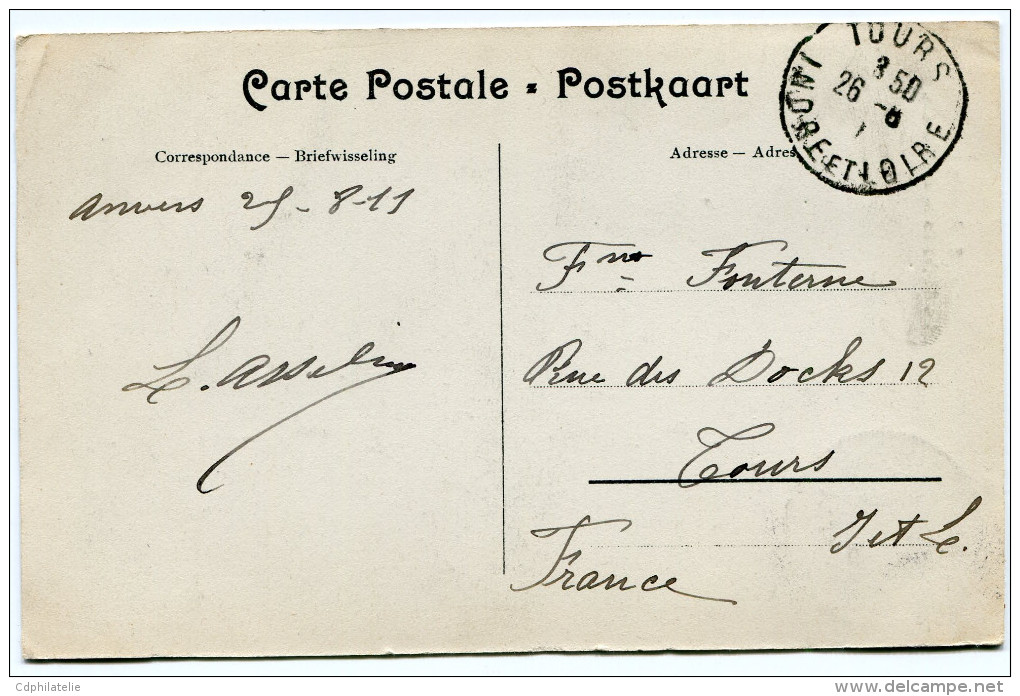 Carte Postale - Postkaart
TOURS
8 50
26 -8
INDRE ET LOIRE
Correspondance — Briefwisseling
Adresse — Adres
Anvers 25-8-11
Fno Fonterne
L. Asselin
Rue des Docks 12
Tours
I et L.
France
Cdphilatelie
delcampe.net